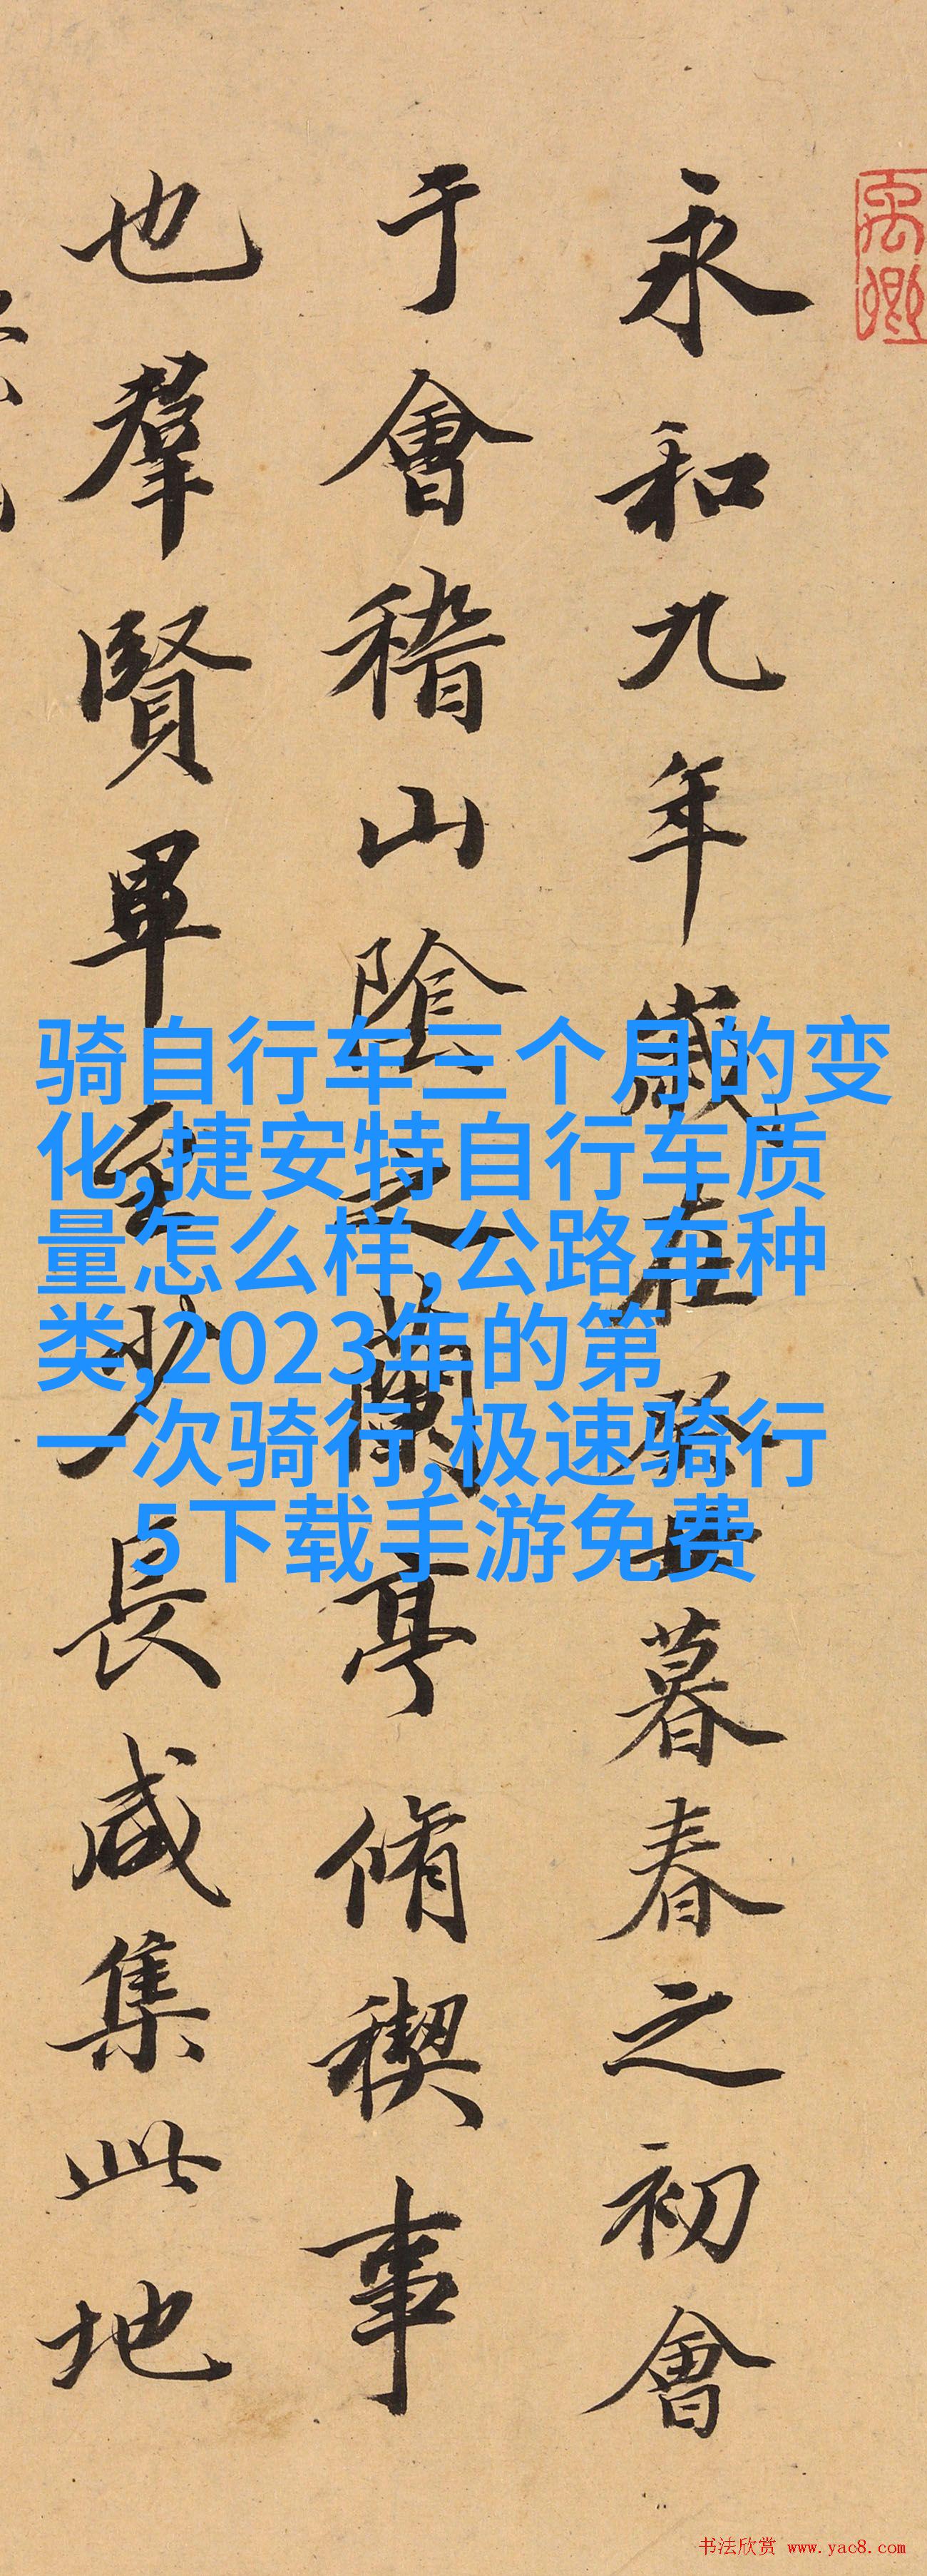 永和九年歲在癸丑暮春之初會
于會稽山陰之蘭亭脩稧事
也羣賢畢至少長咸集此地
骑自行车三个月的变
化,捷安特自行车质
量怎么样,公路车种
类,2023年的第
一次骑行,极速骑行
5下载手游免费
书法欣赏 www.yac8.com